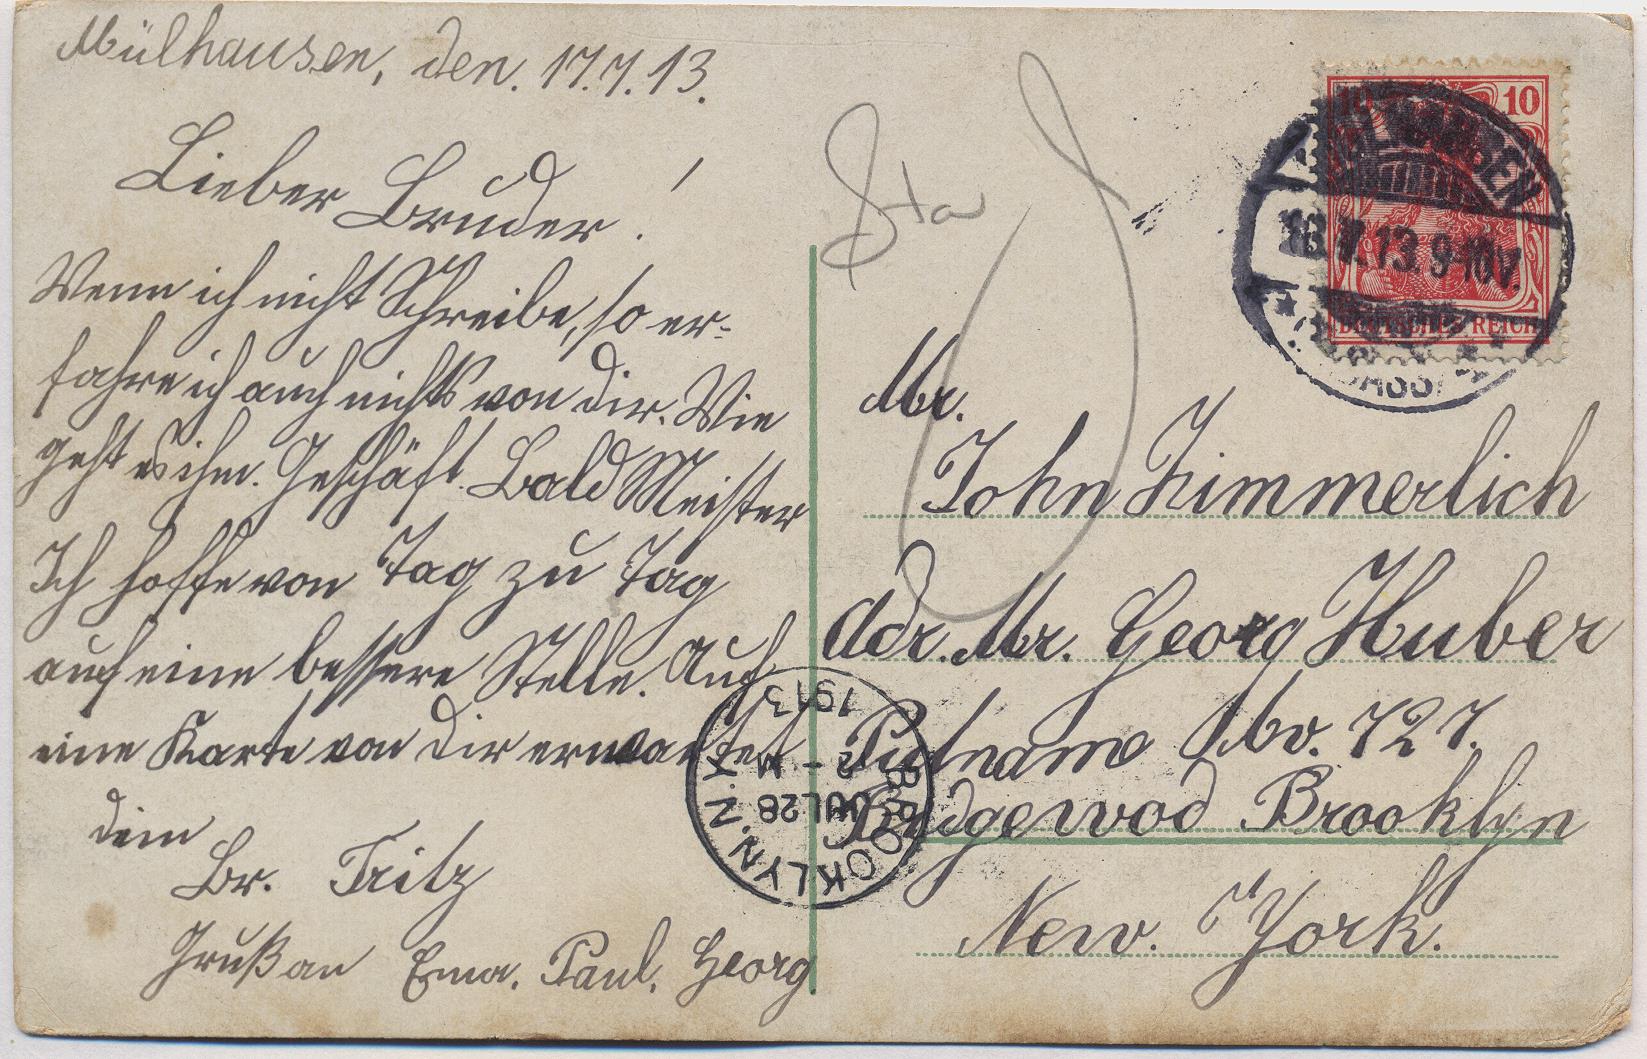 Mülhausen, den. 17.7.13.
Lieber Bruder!
Wenn ich nicht Schreibe, so er-
fahre ich auch nichts von dir. Wie
geht es ihm. Geschäft. Bald Meister
Ich hoffe von Tag zu Tag
auf eine bessere Stelle. Auch
eine Karte von dir erwartet
dein
Br. Fritz
Gruß an Ema. Paul. Georg
Sta
10
DEUTSCHES REICH
13 9-10V.
Mr.
John Zimmerlich
Adr. Mr. Georg Huber
Putnamo Av. 727.
Ridgewod Brooklyn
New. York.
BROOKLYN. N.Y.
JUL 28
2 - M
1913